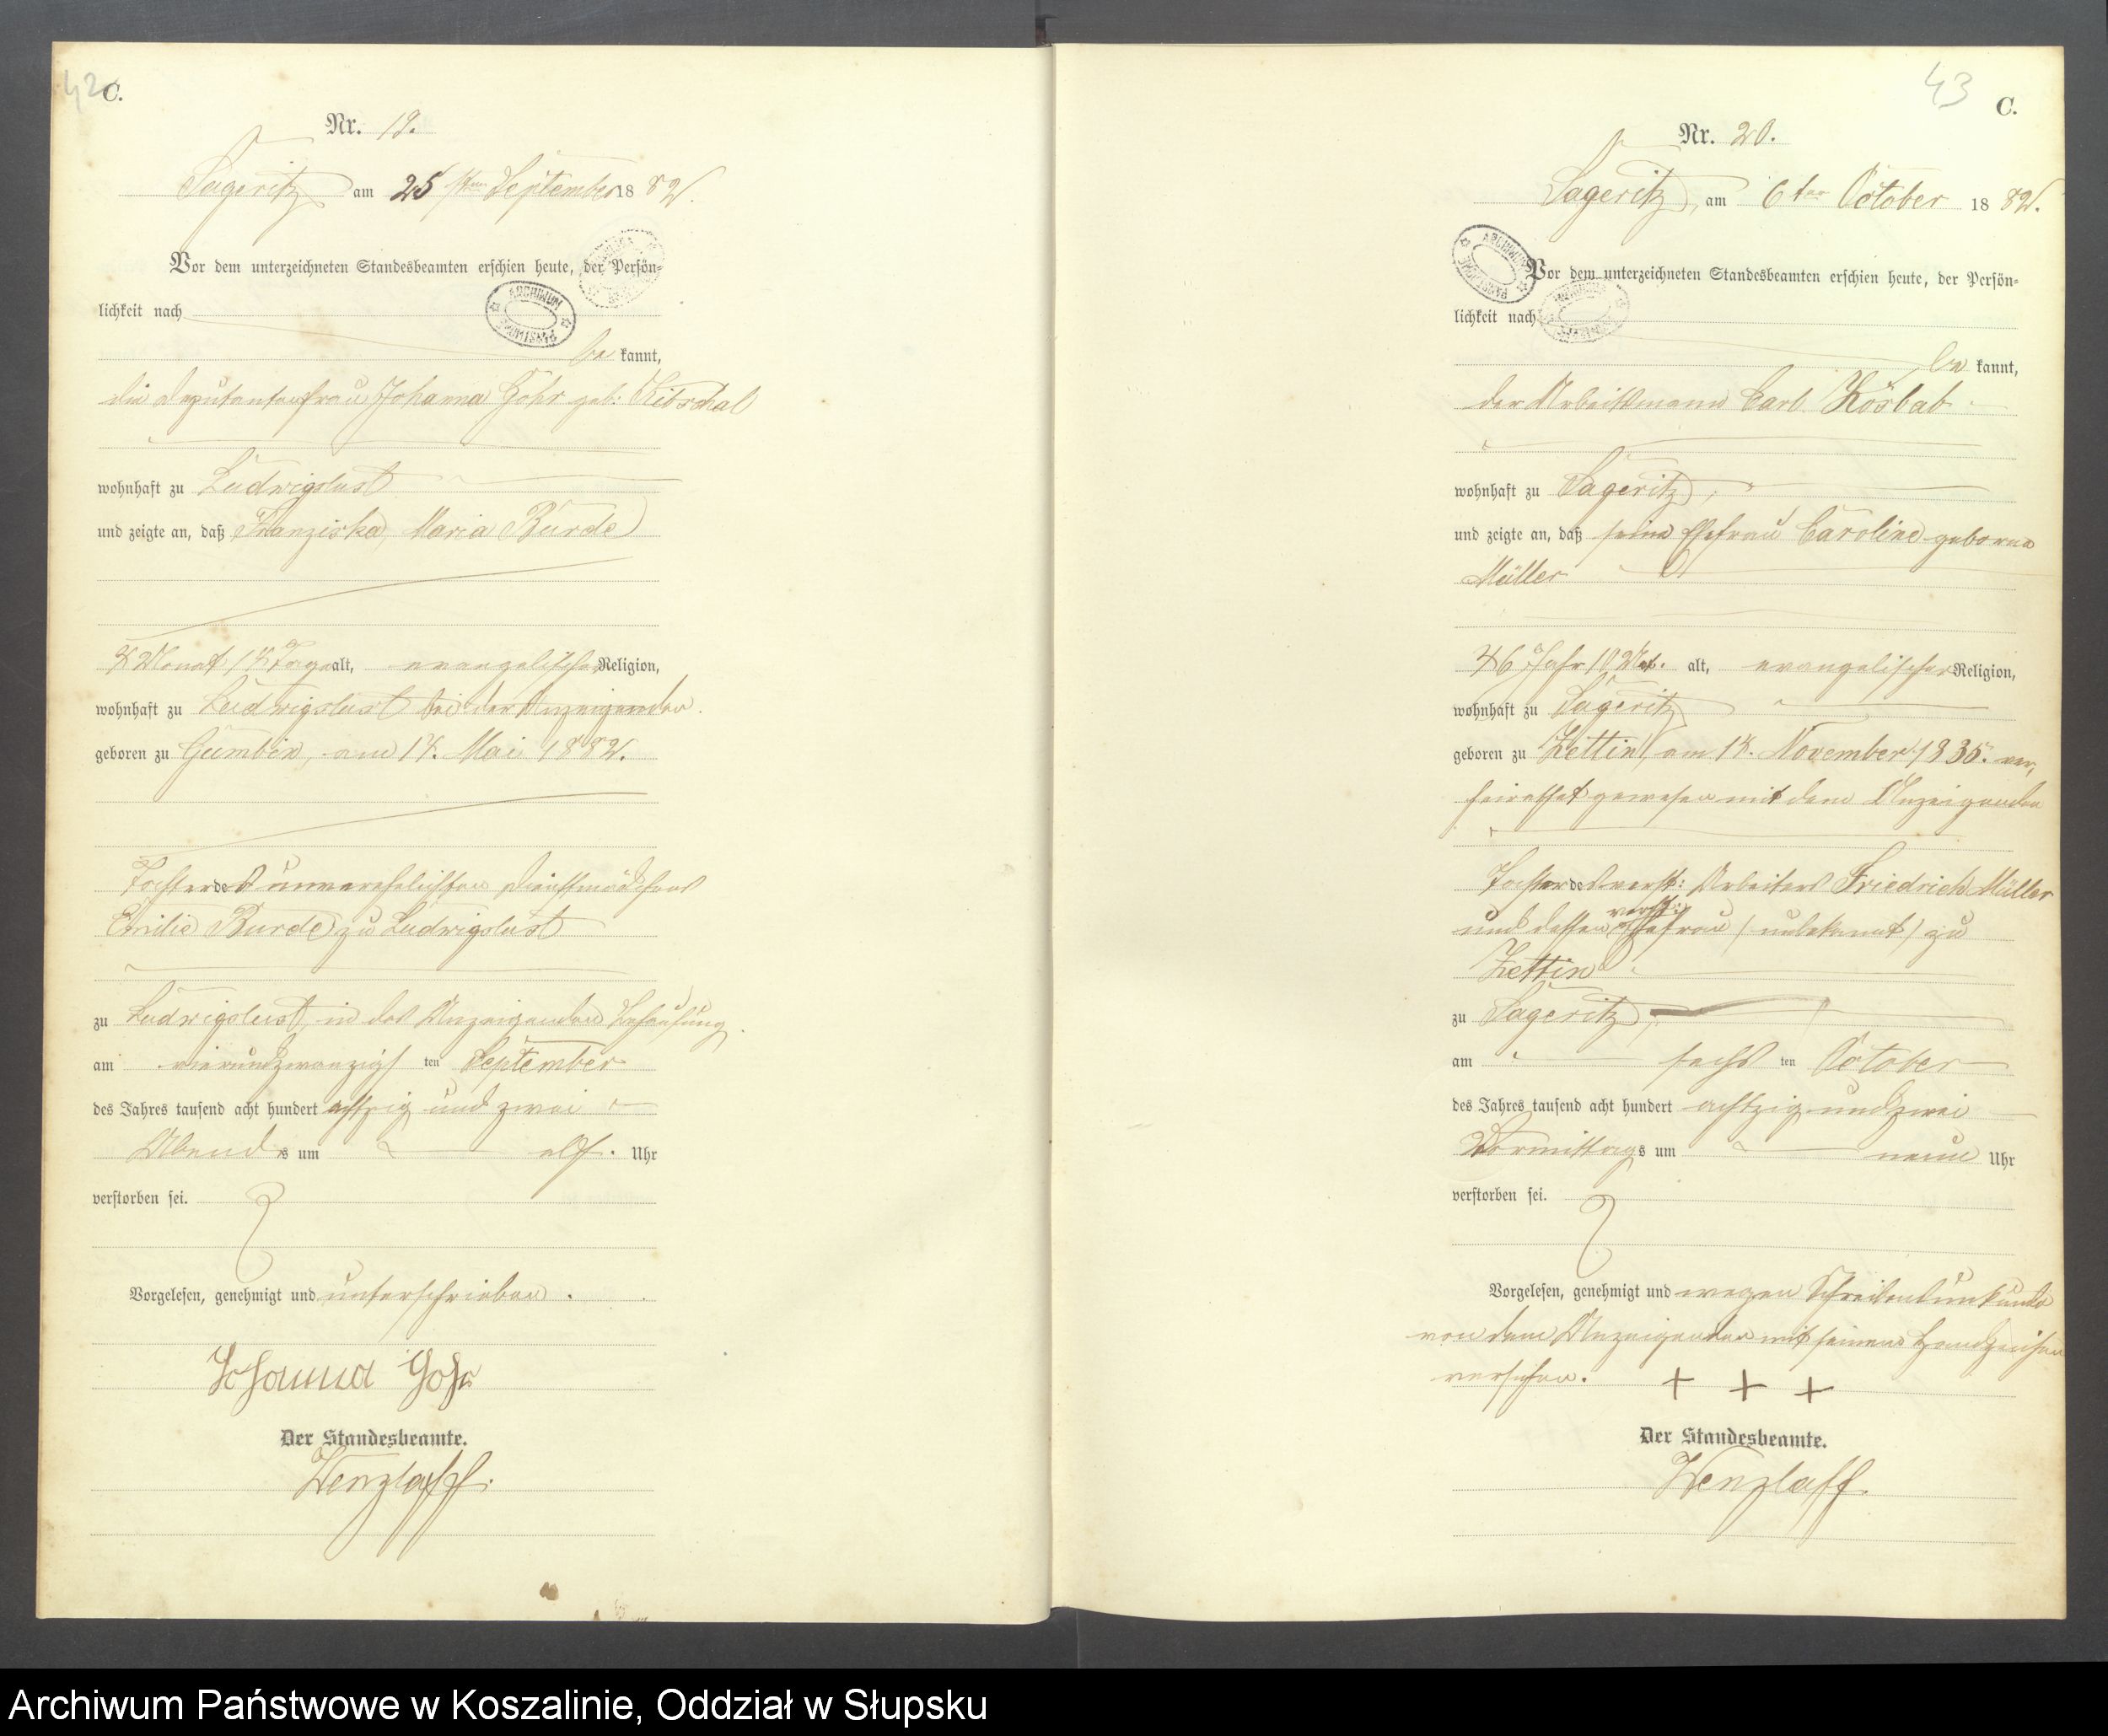 42
C.
Nr. 19.
Sageritz am 25 sten September 1882.
Vor dem unterzeichneten Standesbeamten erschien heute, der Persön-
lichkeit nach
be kannt,
die Deputantenfrau Johanna Gohr geb: Kitschal
wohnhaft zu Ludwigslust
und zeigte an, daß Franziska, Maria Burde
4 Monat 14 Tage alt, evangelischer Religion,
wohnhaft zu Ludwigslust bei der Anzeigenden.
geboren zu Gumbin, am 14. Mai 1882.
Tochter des unverehelichten Dienstmädchens
Emilie Burde zu Ludwigslust
zu Ludwigslust, in der Anzeigenden Behausung.
am vierundzwanzigs ten September
des Jahres tausend acht hundert achtzig und zwei
Abends um elf. Uhr
verstorben sei.
Vorgelesen, genehmigt und unterschrieben.
Johanna Gohr
Der Standesbeamte.
Wenzlaff.
43
C.
Nr. 20.
Sageritz, am 6 ten October 1882.
Vor dem unterzeichneten Standesbeamten erschien heute, der Persön-
lichkeit nach
be kannt,
der Arbeitsmann Carl Kösbab
wohnhaft zu Sageritz,
und zeigte an, daß seine Ehefrau Caroline geborne
Müller
46 Jahr 10 Mt. alt, evangelischer Religion,
wohnhaft zu Sageritz
geboren zu Zettin, am 14. November 1835. ver,
heirathet gewesen mit dem Anzeigenden
Tochter des verst: Arbeiters Friedrich Müller
und dessen verst: Ehefrau (unbekannt) zu
Zettin
zu Sageritz,
am sechs ten October
des Jahres tausend acht hundert achtzig und zwei
Vormittags um neun Uhr
verstorben sei.
Vorgelesen, genehmigt und wegen Schreibensunkunde
von dem Anzeigenden mit seinem Handzeichen
versehen. + + +
Der Standesbeamte.
Wenzlaff.
Archiwum Państwowe w Koszalinie, Oddział w Słupsku